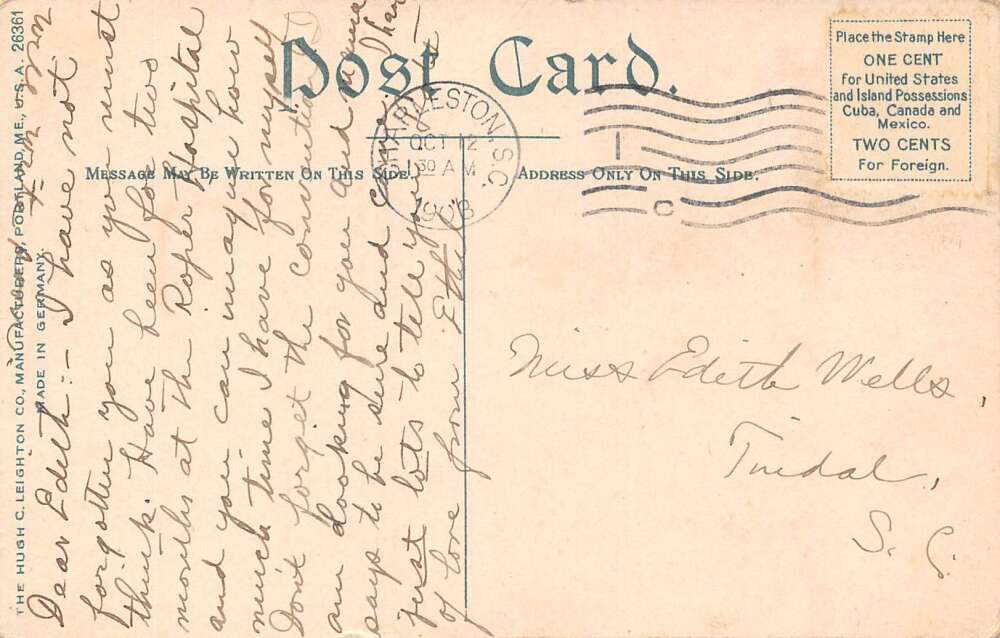 Post Card.
Place the Stamp Here
ONE CENT
for United States
and Island Possessions
Cuba, Canada and
Mexico.
TWO CENTS
For Foreign.
CHARLESTON, S.C.
OCT 12
30 A M
1908
C
MESSAGE MAY BE WRITTEN ON THIS SIDE.
ADDRESS ONLY ON THIS SIDE.
THE HUGH C. LEIGHTON CO., MANUFACTURERS, PORTLAND, ME., U.S.A. 26361
MADE IN GERMANY.
Dear Edith:- I have not
forgotten you as you must
think. Have been for two
months at the Roper Hospital
and you can imagine how
much time I have for myself
Don't forget the convention I
am looking for you and mama
says to be sure and come. I have
just lots to tell you. Lots
of love from Ethel
Miss Edith Wells,
Tindal,
S. C.